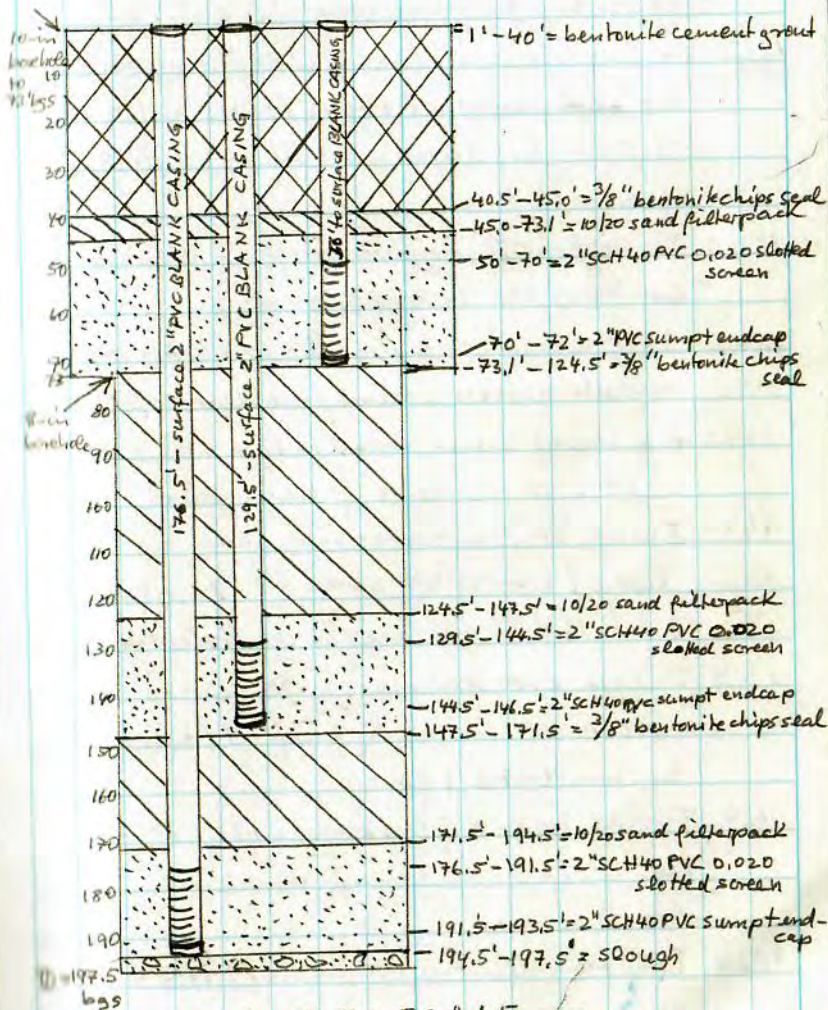 10-in
borehole
to
73' bgs
10
20
30
40
50
60
70
73
8-in
borehole
80
90
100
110
120
130
140
150
160
170
180
190
197.5
bgs
176.5'-surface 2" PVC BLANK CASING
129.5'-surface 2" PVC BLANK CASING
surface BLANK CASING
1'-40' = bentonite cement grout
40.5'-45.0' = 3/8" bentonite chips seal
45.0-73.1' = 10/20 sand filterpack
50'-70' = 2" SCH40 PVC 0.020 slotted
screen
70'-72' = 2" PVC sumpt endcap
73.1'-124.5' = 3/8" bentonite chips
seal
124.5'-147.5' = 10/20 sand filterpack
129.5'-144.5' = 2" SCH40 PVC 0.020
slotted screen
144.5'-146.5' = 2" SCH40 PVC sumpt endcap
147.5'-171.5' = 3/8" bentonite chips seal
171.5'-194.5' = 10/20 sand filterpack
176.5'-191.5' = 2" SCH40 PVC 0.020
slotted screen
191.5-193.5' = 2" SCH40 PVC sumpt end-
cap
194.5'-197.5' = slough